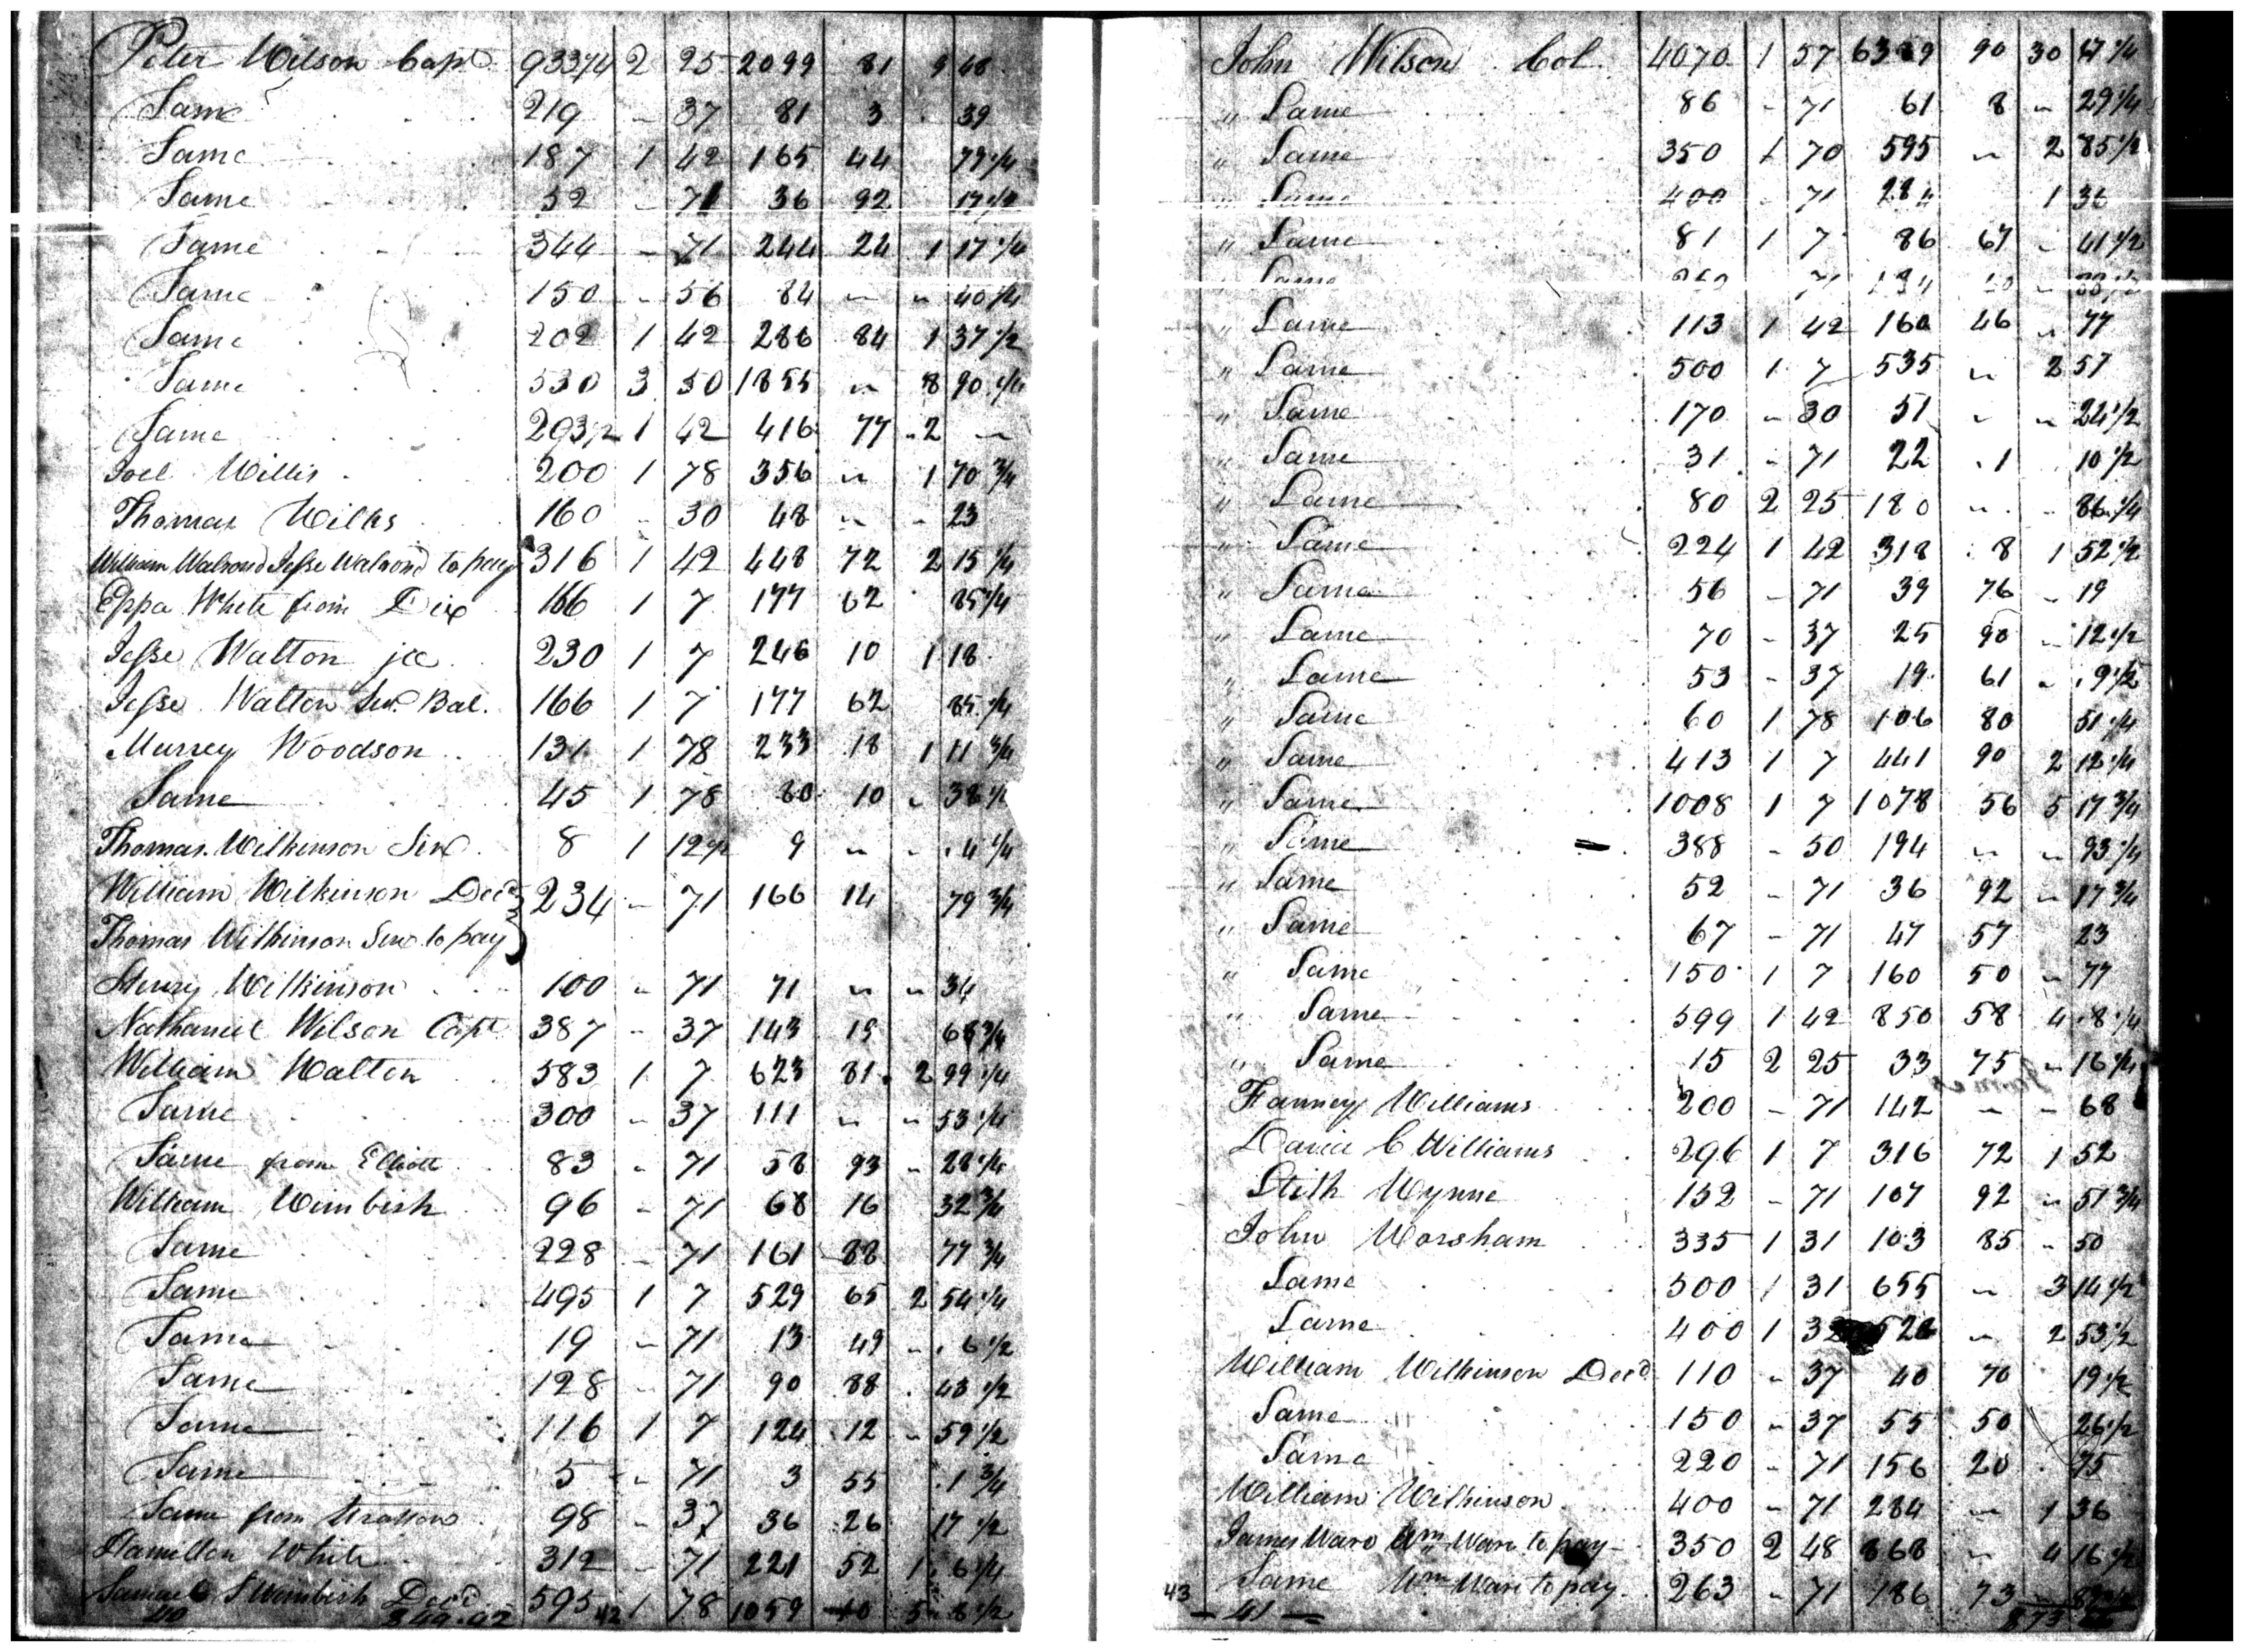 Peter Wilson Capt. 933 3/4 2 25 2099 81 9 48
Same 219 - 37 81 3 39
Same 187 1 42 165 44 79 1/4
Same 52 - 71 36 92 17 1/2
Same 344 - 71 244 24 1 17 1/4
Same 150 - 56 84 " " 40 1/4
Same 202 1 42 286 84 1 37 1/2
Same 530 3 50 1855 " 8 90 1/4
Same 293 1/2 1 42 416 77 2 "
Joel Willis 200 1 78 356 " 1 70 3/4
Thomas Wilks 160 - 30 48 " - 23
William Walrond Jesse Walrond to pay 316 1 42 448 72 2 15 1/4
Eppa White from Dix 166 1 7 177 62 85 1/4
Jesse Walton 230 1 7 246 10 1 18
Jesse Walton Senr. Bal. 166 1 7 177 62 85 1/4
Murrey Woodson 131 1 78 233 18 1 11 3/4
Same 45 1 78 80 10 " 38 1/2
Thomas Wilkinson Senr. 8 1 12 1/2 9 " - 4 1/4
William Wilkinson Decd 234 - 71 166 14 79 3/4
Thomas Wilkinson Senr to pay
Henry Wilkinson 100 - 71 71 " " 34
Nathaniel Wilson Capt 387 - 37 143 19 68 3/4
William Walton 583 1 7 623 81 2 99 1/4
Same 300 - 37 111 " " 53 1/4
Same from Elliott 83 - 71 58 93 - 28 1/4
William Wimbish 96 - 71 68 16 32 3/4
Same 228 - 71 161 88 77 3/4
Same 495 1 7 529 65 2 54 1/4
Same 19 - 71 13 49 - 6 1/2
Same 128 - 71 90 88 43 1/2
Same 116 1 7 124 12 - 59 1/2
Same 5 - 71 3 55 1 3/4
Same from Stratton 98 - 37 36 26 17 1/2
Hamilton White 312 - 71 221 52 1 6 1/4
Samuel S Wimbish Decd. 595 1 78 1059 10 5 8 1/2
40 349.92 42
John Wilson Col. 4070 1 57 6389 90 30 67 1/4
" Same 86 - 71 61 8 " 29 1/4
" Same 350 1 70 595 " 2 85 1/2
" Same 400 - 71 284 1 36
" Same 81 1 7 86 67 - 41 1/2
" Same 71
" Same 113 1 42 160 46 " 77
" Same 500 1 7 535 " 2 57
" Same 170 - 30 51 " " 24 1/2
" Same 31 - 71 22 1 10 1/2
" Same 80 2 25 180 " - 86 1/4
" Same 224 1 42 318 8 1 52 1/2
" Same 56 - 71 39 76 - 19
" Same 70 - 37 25 90 - 12 1/2
" Same 53 - 37 19 61 - 9 1/2
" Same 60 1 78 106 80 51 1/4
" Same 413 1 7 441 90 2 12 1/4
" Same 1008 1 7 1078 56 5 17 3/4
" Same 388 - 50 194 " " 93 1/4
" Same 52 - 71 36 92 " 17 3/4
" Same 67 - 71 47 57 23
" Same 150 1 7 160 50 - 77
" Same 599 1 42 850 58 4 8 1/4
" Same 15 2 25 33 75 - 16 1/4
Fanney Williams 200 - 71 142 - - 68
David C Williams 296 1 7 316 72 1 52
Stith Wynne 152 - 71 107 92 " 51 3/4
John Worsham 335 1 31 103 85 - 50
Same 500 1 31 655 " 3 14 1/2
Same 400 1 32 528 " 2 53 1/2
William Wilkinson Decd 110 - 37 40 70 19 1/2
Same 150 - 37 55 50 26 1/2
Same 220 - 71 156 20 75
William Wilkinson 400 - 71 284 " 1 36
James Ware Wm Ware to pay 350 2 48 868 " 4 16 1/2
Same Wm Ware to pay 263 - 71 186 73 - 89 3/4
43 - 41 - 873